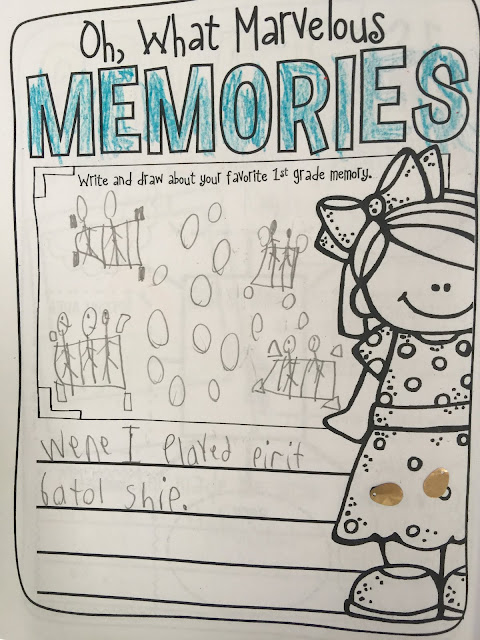 Oh, What Marvelous
MEMORIES
Write and draw about your favorite 1st grade memory.
wene I Played pirit
batol ship.